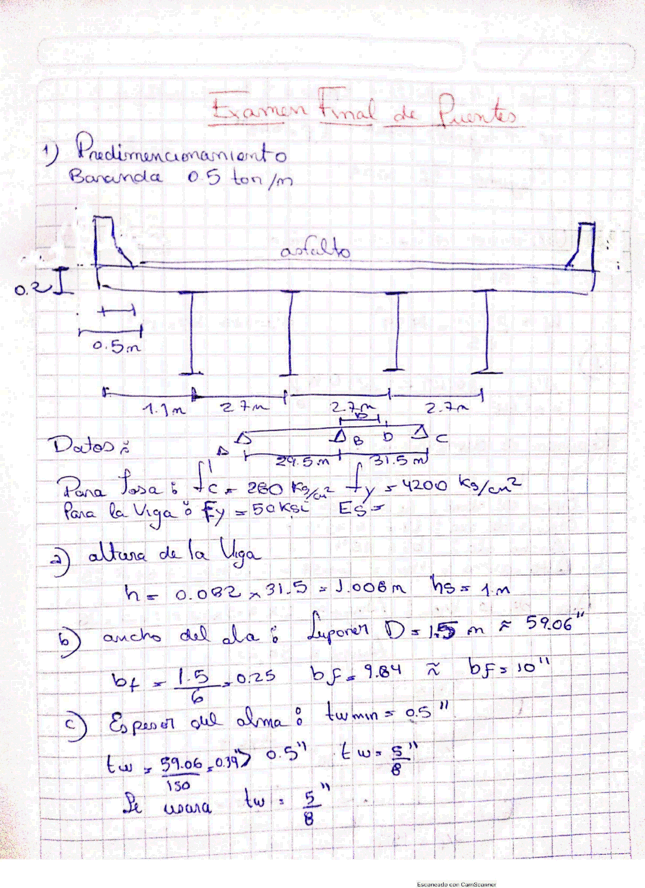 Examen Final de Puentes
1) Predimencionamiento
Baranda 0.5 ton/m
asfalto
0.2
0.5m
1.1m 2.7m 2.7m 2.7m
D
A B D C
29.5m 31.5m
Datos:
Para losa: f'c = 280 kg/cm² fy = 4200 kg/cm²
Para la Viga: Fy = 50 ksi Es=
a) altura de la Viga
h = 0.032 x 31.5 = 1.008m hs = 1.m
b) ancho del ala: Suponer D = 1.5 m ≈ 59.06"
bf = 1.5/6 = 0.25 bf = 9.84 ≈ bf = 10"
c) Espesor del alma: tw min = 0.5"
tw = 59.06/150 = 0.39"> 0.5" tw = 5/8"
Se usara tw = 5/8"
Escaneado con CamScanner